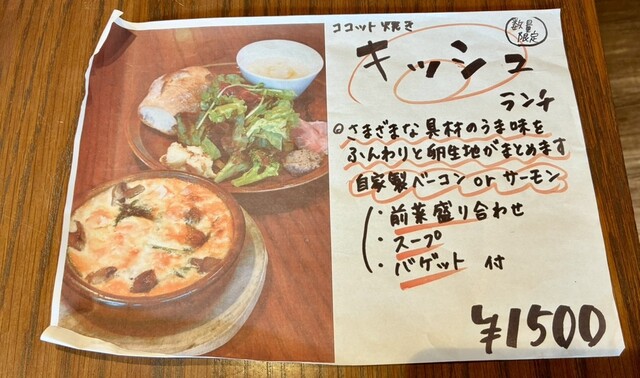 ココット焼き
数量限定
キッシュ
ランチ
◎さまざまな具材のうま味を
ふんわりと卵生地がまとめます
自家製ベーコン or サーモン
・前菜盛り合わせ
・スープ
・バゲット 付
¥1500